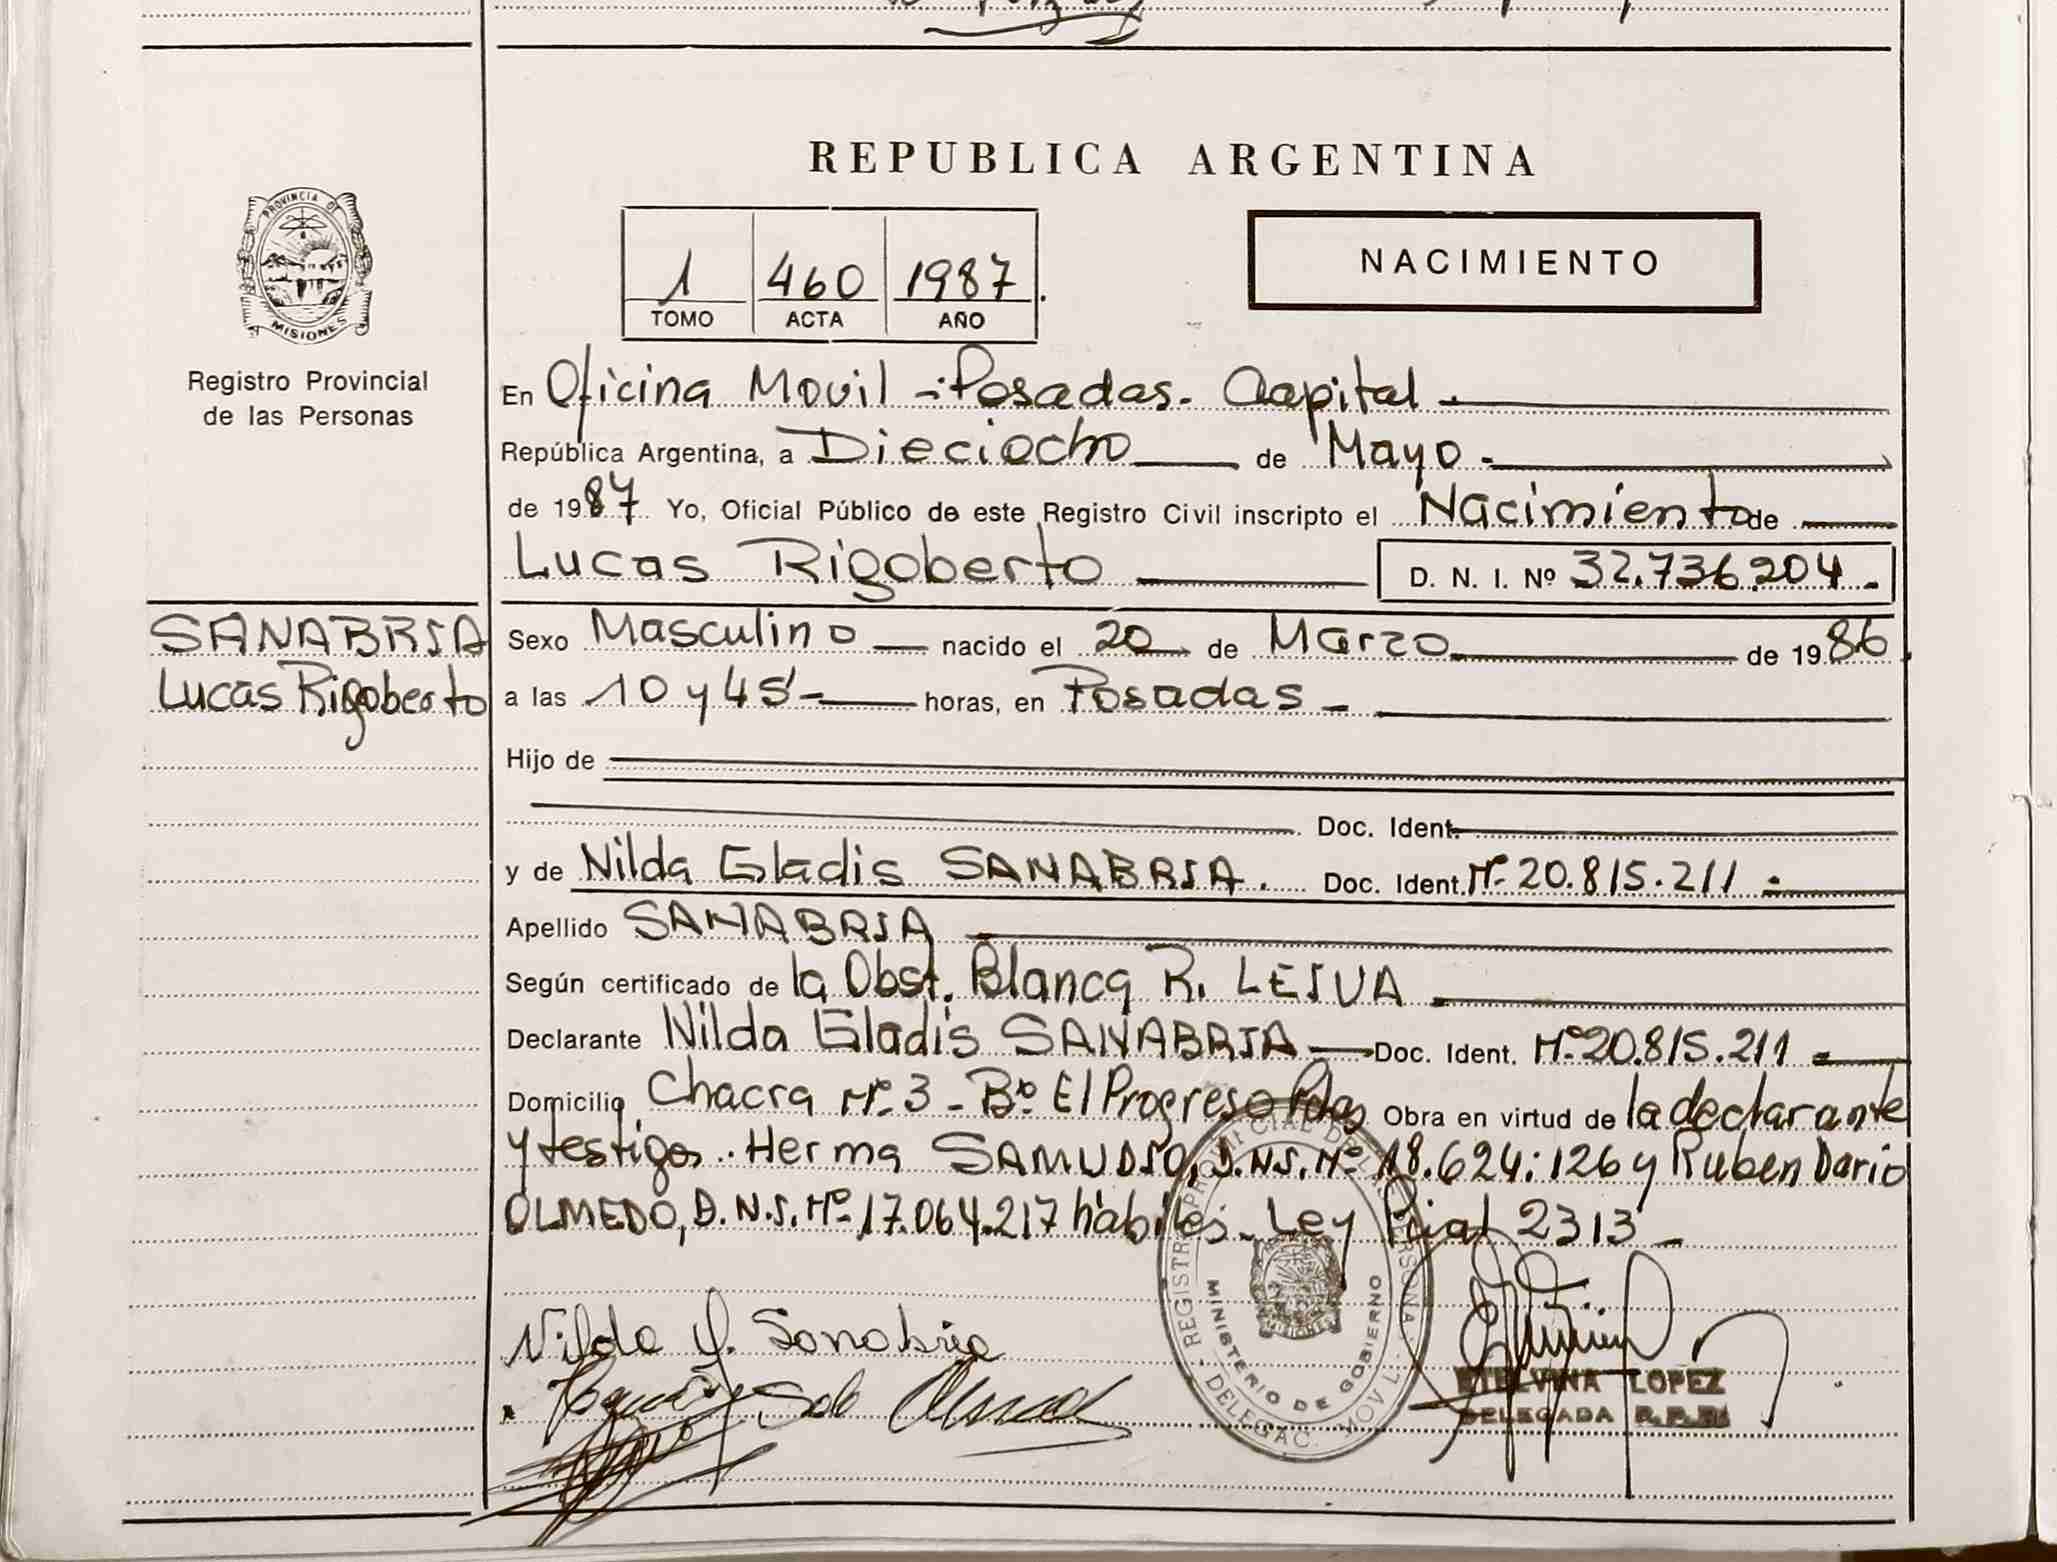 REPUBLICA ARGENTINA
PROVINCIA DE
MISIONES
Registro Provincial
de las Personas
1 460 1987
TOMO ACTA AÑO
NACIMIENTO
En Oficina Movil - Posadas. Capital
República Argentina, a Dieciocho de Mayo
de 1987 Yo, Oficial Público de este Registro Civil inscripto el Nacimiento de
Lucas Rigoberto D. N. I. Nº 32.736.204
SANABRIA
Lucas Rigoberto
Sexo Masculino nacido el 20 de Marzo de 1986
a las 10 y 45' horas, en Posadas
Hijo de
Doc. Ident.
y de Nilda Gladis SANABRIA. Doc. Ident. Nº 20.815.211
Apellido SANABRIA
Según certificado de la Obst. Blanca R. LEIVA
Declarante Nilda Gladis SANABRIA Doc. Ident. Nº 20.815.211
Domicilio Chacra Nº 3 - Bº El Progreso Pdas Obra en virtud de la declarante
y testigos. Herma SAMUDIO, D.N.I. Nº 18.624.126 y Ruben Dario
OLMEDO, D.N.I. Nº 17.064.217 hábiles. Ley Pcial 2313
Nilda G. Sanabria
REGISTRO PROVINCIAL DE LAS PERSONAS
MINISTERIO DE GOBIERNO
DELEGAC. MOVIL
MISIONES
ETELVINA LOPEZ
DELEGADA R.P.P.